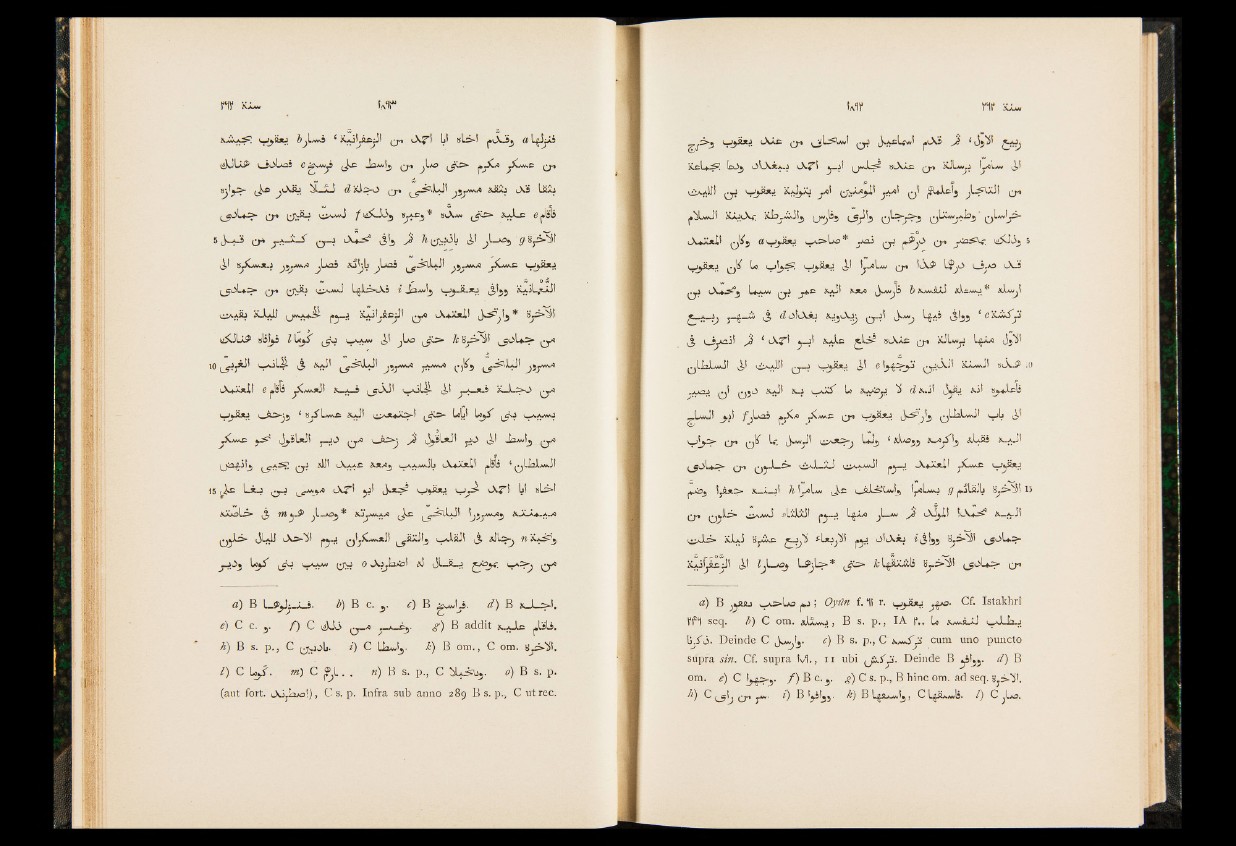 سنة ٢٦٢ ١٨٩٢
ربيع الأوّل، ثم قدم اسماعيل بن اسحاق من عند يعقوب وخرج
الى سامرّا برسالة من عنده فجلس ابو احمد ببغداد ودعا بجماعة
من التجار وأعلمهم ان امير المؤمنين امر بتولية يعقوب بن الليث
خراسان وطبرستان وجرجان والرىّ وفارس والشرطة بمدينة السلام
5 وذلك بمحضر من درهم بن نصر *صاحب يعقوب a وكان المعتمد
قد صرف درهما هذا من سامرّا الى يعقوب بجواب ما كان يعقوب
ارسله *يسئله لنفسه b فأرسل معه اليه عمر بن سيما ومحمّد بن
تركشه c، ووافى فيها رسل ابن زيدويه بغداد d فى شهر ربيع
الأوّل منها برسالة من عنده فخلع عليه ابو احمد، ثم انصرف فى
10 هذه السنة الذين توجّهوا e الى يعقوب بن الليث الى السلطان
فأعلموه انه يقول انه d لا يرضيه ما كتب به اليه دون ان يصير
الى باب السلطان وارتحل يعقوب من عسكر مكرم فصار f ابو الساج
اليه فقبله واكرمه ووصله، ولمّا رجعت الرسل بما كان من جواب
يعقوب عسكر المعتمد يوم السبت لثلث خلون من جمادى
15 الآخرة بالقائم g بسامرّا واستخلف على سامرّا h ابنه جعفرا وضمّ
اليه محمّدا المولّد ثم سار منها يوم الثلثاء لستّ خلون من
جمادى الآخرة ووافى i بغداد يوم الاربعاء لاربع عشرة ليلة خلت
من جمادى الآخرة فاشتقّها k حتى *جازها وصار l الى الزَّعْفَرانيّة
a) B نم صاحب ; Oyûn f. ٩٤ r. صهر يعقوب. Cf. Istakhrî
٢٤٦ seq. b) C om. يسئله, B s. p., IA ٢٠٠ ما
ذكرنا. Deinde C وارسل. c) B s. p., C تركسه cum uno puncto
supra sin. Cf. supra, 11 ubi تركش. Deinde B ووافو. d) B
om. e) C وجهوا. f) B c. و. g) C s. p., B hinc om. ad seq. الاخرة.
h) C سر من راى. i) B ووافوا. k) B واسفها, C فاسقها. l) C صار.
سنة ٢٦٢ ١٨٩٣
فنزلها a وقدّم اخاه ابا احمد من الزعفرانيّة، فسار b يعقوب بجيشه
من عسكر مكرم حتى صار من واسط على فرسخ c فصادف هنالك
بثقا قد بثقه مسرور البلخىّ من دجلة d لئلّا يقدر على جوازه
فأقام e عليه حتى سدّه *وعبره وذلك f لستّ بقين من جمادى
5 الآخرة g وصار الى باذبين h ثم وافى محمّد بن كثير من قبل
يعقوب عسكر مسرور البلخىّ فصار بإزائه فصار مسرور بعسكره الى
النُّعْمانيّة ووافى يعقوب واسط i فدخلها لستّ بقين من جمادى
الآخرة *وارتحل المعتمد من الزعفرانيّة يوم الخميس لليلة بقيت
من جمادى الآخرة k حتى صار الى سيب بنى كُوما l فوافاه هنالك
10 مسرور البلخىّ وكان مسير مسرور البلخىّ اليه فى الجانب الغربىّ
من دجلة فعبر الى الجانب الذى فيه العسكر فأقام e المعتمد
بسيب بنى كوما ايّاما حتى اجتمعت اليه عساكره، وزحف يعقوب
من واسط الى دير العاقول ثم زحف من دير العاقول نحو عسكر
السلطان، فأقام المعتمد بالسيب ومعه عبيد الله بن يحيى وانهض
15 اخاه ابا احمد لحرب يعقوب فجعل ابو احمد موسى بن بغا على
ميمنته ومسرورا البلخىّ على ميسرته *وصار هو m فى خاصّته
ونخبة n رجاله فى القلب والتقى العسكران يوم الاحد لليال خلون
من رجب بموضع يقال له اضطربد o بين سيب بنى كوما ودير
a) B فنزلوها. b) B c. و. c) B فراسخ. d) B الدجلة.
e) C c. و. f) C وغبر من ذلك. g) B addit فاقام عليه.
h) B s. p., C بادبين. i) C واسطا. k) B om., C om. الاخرة.
l) C كوما. m) C . . . n) B s. p., C. o) B s. p.
(aut fort. اضطربد), C s. p. Infra sub anno 289 B s. p., C ut rec.